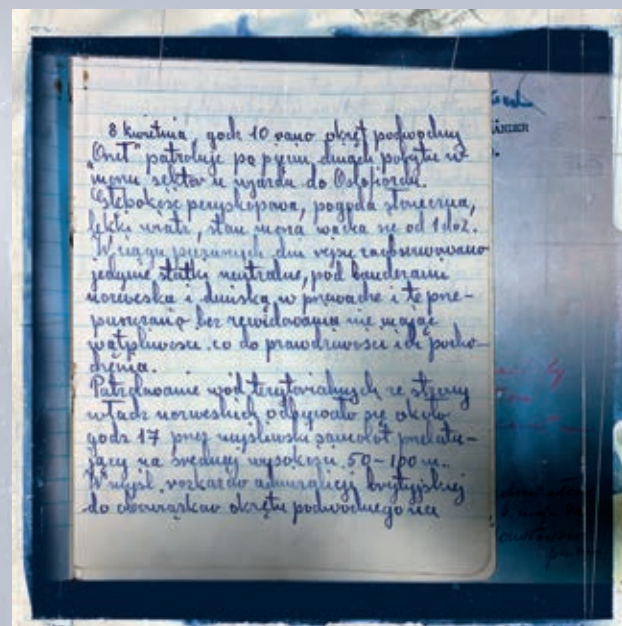 8 kwietnia godz 10 rano okręt podwodny
"Orzeł" patroluje po pięciu dniach pobytu w
morzu sektor u wjazdu do Oslofiordu.
Głębokość peryskopowa, pogoda słoneczna,
lekki wiatr, stan morza wacha się od 1 do 2.
W ciągu pierwszych dni rejsu zaobserwowano
jedynie statki neutralne, pod banderami
norweską i duńską, w prawdzie i te prze-
puszczano bez rewidowania nie mając
wątpliwości co do prawdziwości ich pocho-
dzenia.
Patrolowanie wód terytorialnych ze strony
władz norweskich odbywało się około
godz 17 przez myśliwski samolot przelatu-
jący na średniej wysokości 50-100 m.
W myśl rozkazów admiralicji brytyjskiej
do obowiązków okrętu podwodnego nie